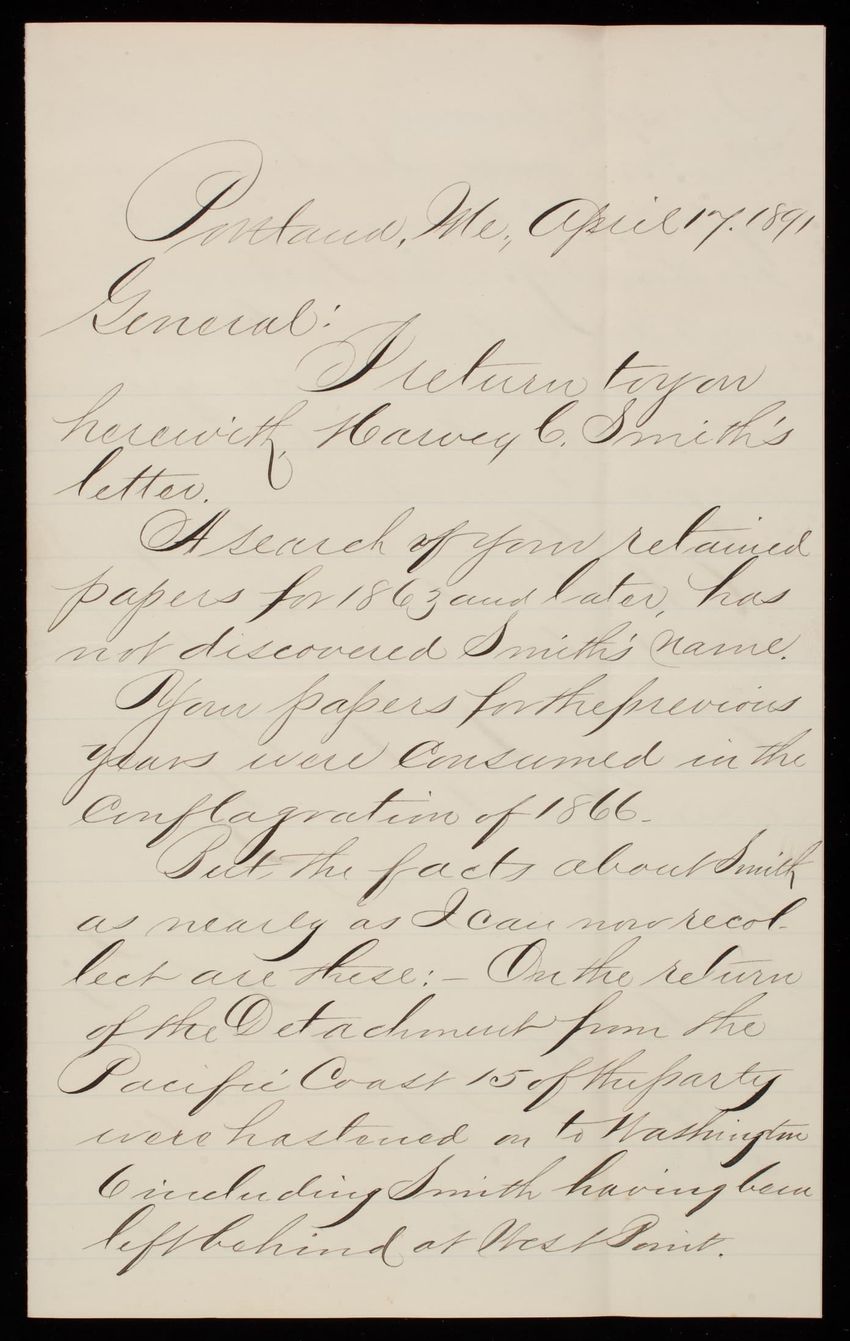 Portland, Me., April 17. 1891
General:
I return to you
herewith, Harvey C. Smith's
letter.
A search of your retained
papers for 1863 and later, has
not discovered Smith's name.
Your papers for the previous
years were consumed in the
conflagration of 1866.
But, the facts about Smith
as nearly as I can now recol-
lect are these:- On the return
of the Detachment from the
Pacific Coast 15 of the party
were hastened on to Washington
6 including Smith having been
left behind at West Point.